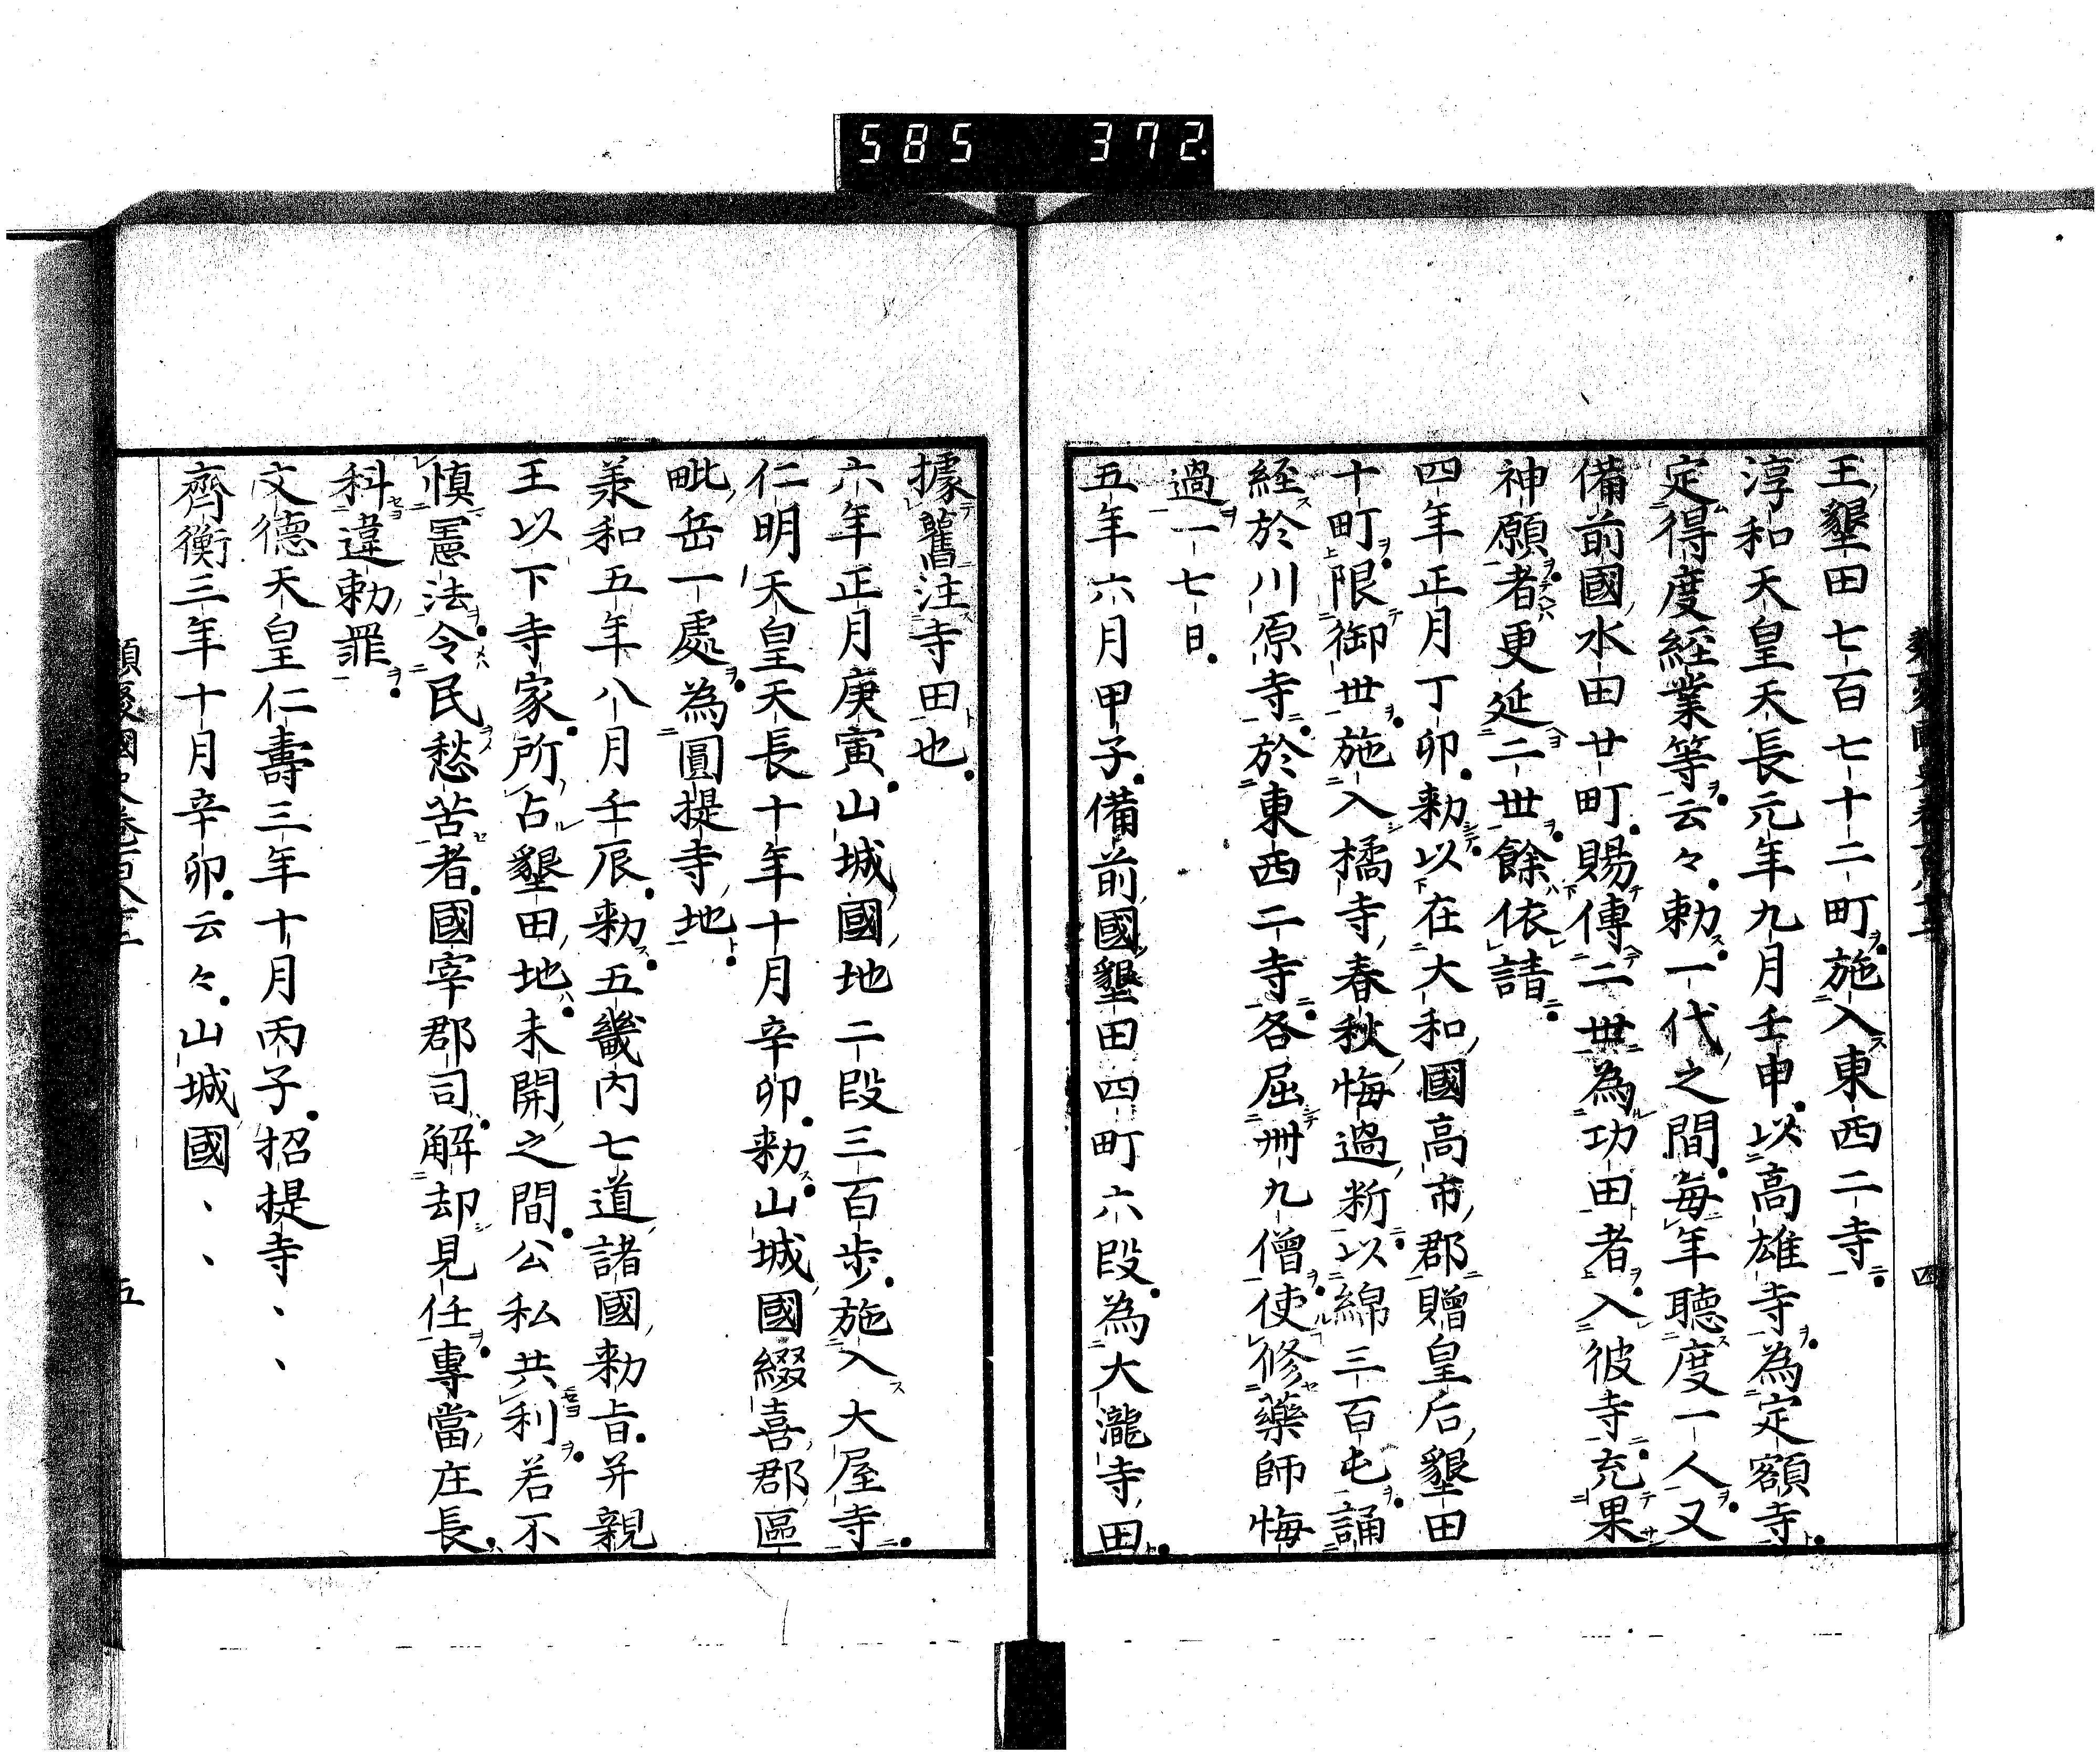 585 372
王墾田七百七十二町施入東西二寺
淳和天皇天長元年九月壬申以高雄寺為定額寺
定得度経業等云々勅一代之間毎年聴度一人又
備前國水田廿町賜傳二世為功田者入彼寺充果
神願者更延二世餘依請
四年正月丁卯勅以在大和國高市郡贈皇后墾田
十町限御世施入橘寺春秋悔過析以綿三百屯誦
経於川原寺於東西二寺各屈卌九僧使修藥師悔
過一七日
五年六月甲子備前國墾田四町六段為大瀧寺田
據舊注寺田也
六年正月庚寅山城國地二段三百歩施入大屋寺
仁明天皇天長十年十月辛卯勅山城國綴喜郡區
毗岳一處為圓提寺地
羕和五年八月壬辰勅五畿内七道諸國勅旨并親
王以下寺家所占墾田地未開之間公私共利若不
慎憲法令民愁苦者國宰郡司解却見任專當庄長
科違勅罪
文徳天皇仁壽三年十月丙子招提寺、、
齊衡三年十月辛卯云々山城國、、
五